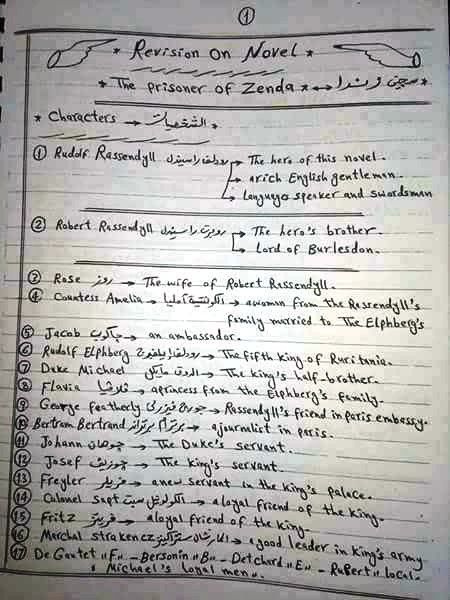 1
* Revision On Novel *
* The prisoner of Zenda * ↔ سجين زندا *
* Characters → الشخصيات
1 Rudolf Rassendyll رودلف راسيندل → The hero of this novel.
→ arich English gentleman.
→ languages speaker and swordsman
2 Robert Rassendyll روبرت راسيندل → The hero's brother.
→ Lord of Burlesdon.
3 Rose روز → The wife of Robert Rassendyll.
4 Countess Amelia → الكونتيسة أميليا → awoman from the Rassendyll's
family married to The Elphberg's
5 Jacob جاكوب → an ambassador.
6 Rudolf Elphberg رودلف إيلفبرج → The fifth king of Ruritania.
7 Duke Michael الدوق مايكل → The king's half-brother.
8 Flavia فلافيا → aprincess from the Elphberg's family.
9 George featherly جورج فيزرلى → Rassendyll's friend in paris embassy.
10 Bertram Bertrand برترام برتراند → ajournalist in paris.
11 Johann جوهان → The Duke's servant.
12 Josef جوزيف → The king's servant.
13 Freyler فريلر → anew servant in the king's palace.
14 Colonel sapt الكولونيل سبت → aloyal friend of the king.
15 Fritz فريتز → aloyal friend of the king.
16 Marchal strakencz المارشال ستراكينز → agood leader in king's army
17 De Gautet "F" - Bersonin "B" - Detchard "E" - Rupert "local.
* Michael's Loyal men".